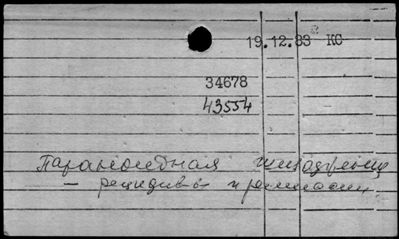 19.12.83 КС
34678
43554
Параноидная шизофрения
— рецидивы и ремиссии